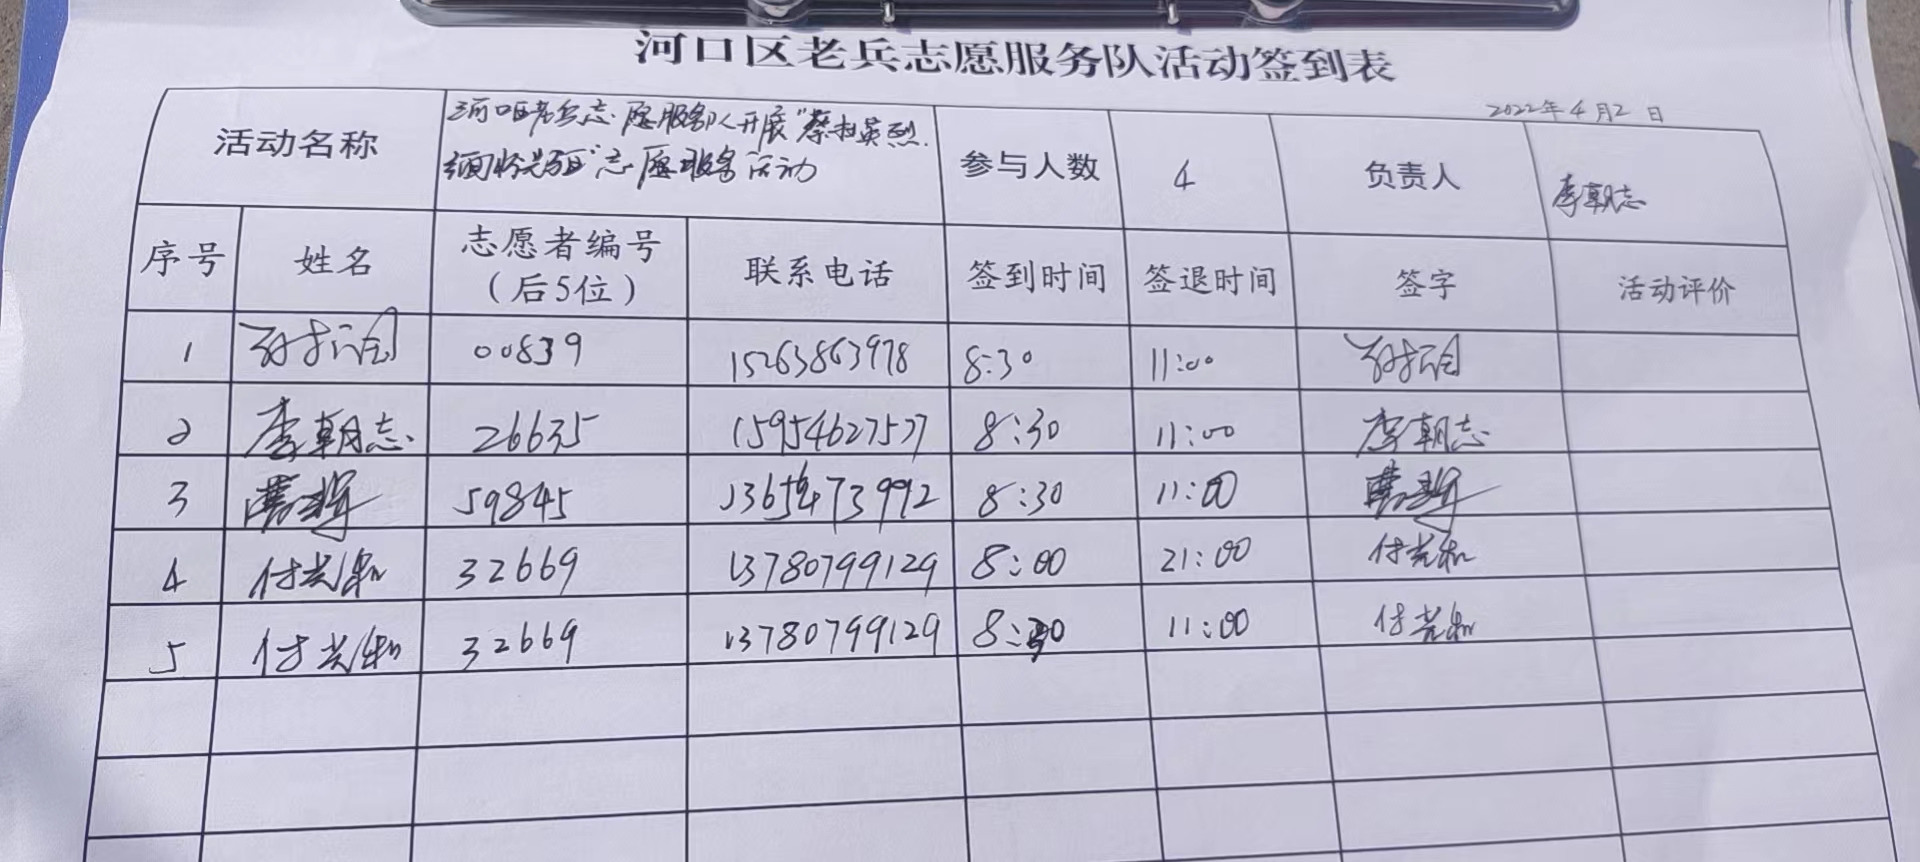 河口区老兵志愿服务队活动签到表
2022年4月2日
活动名称 河口区老兵志愿服务队开展"祭扫英烈. 参与人数 4 负责人 李朝志
缅怀先烈"志愿服务活动
序号 姓名 志愿者编号 联系电话 签到时间 签退时间 签字 活动评价
（后5位）
1 00839 15263863978 8:30 11:00
2 李朝志 26635 15954627577 8:30 11:00 李朝志
3 59845 8:30 11:00
4 付兰和 32669 13780799129 8:00 21:00 付兰和
5 付兰和 32669 13780799129 8:30 11:00 付兰和